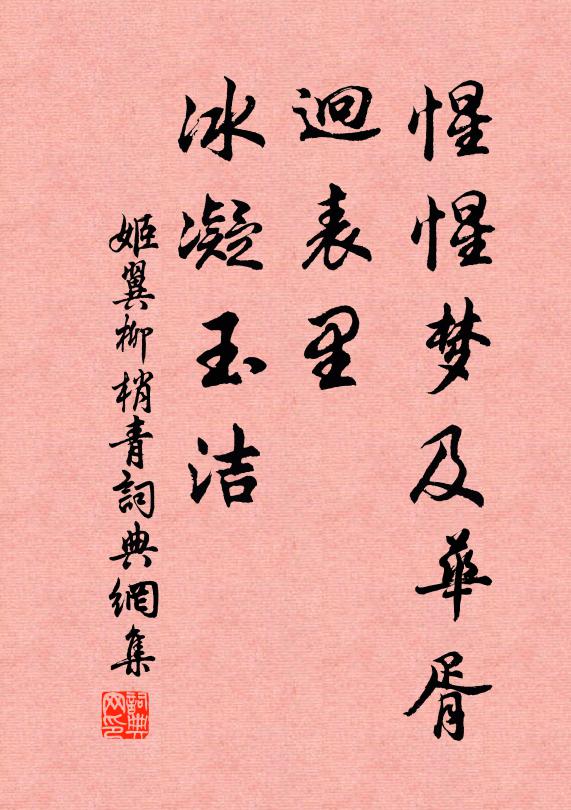 惺惺梦及華胥
迥表里
冰凝玉洁
姬翼柳梢青詞典網集
詞典网印